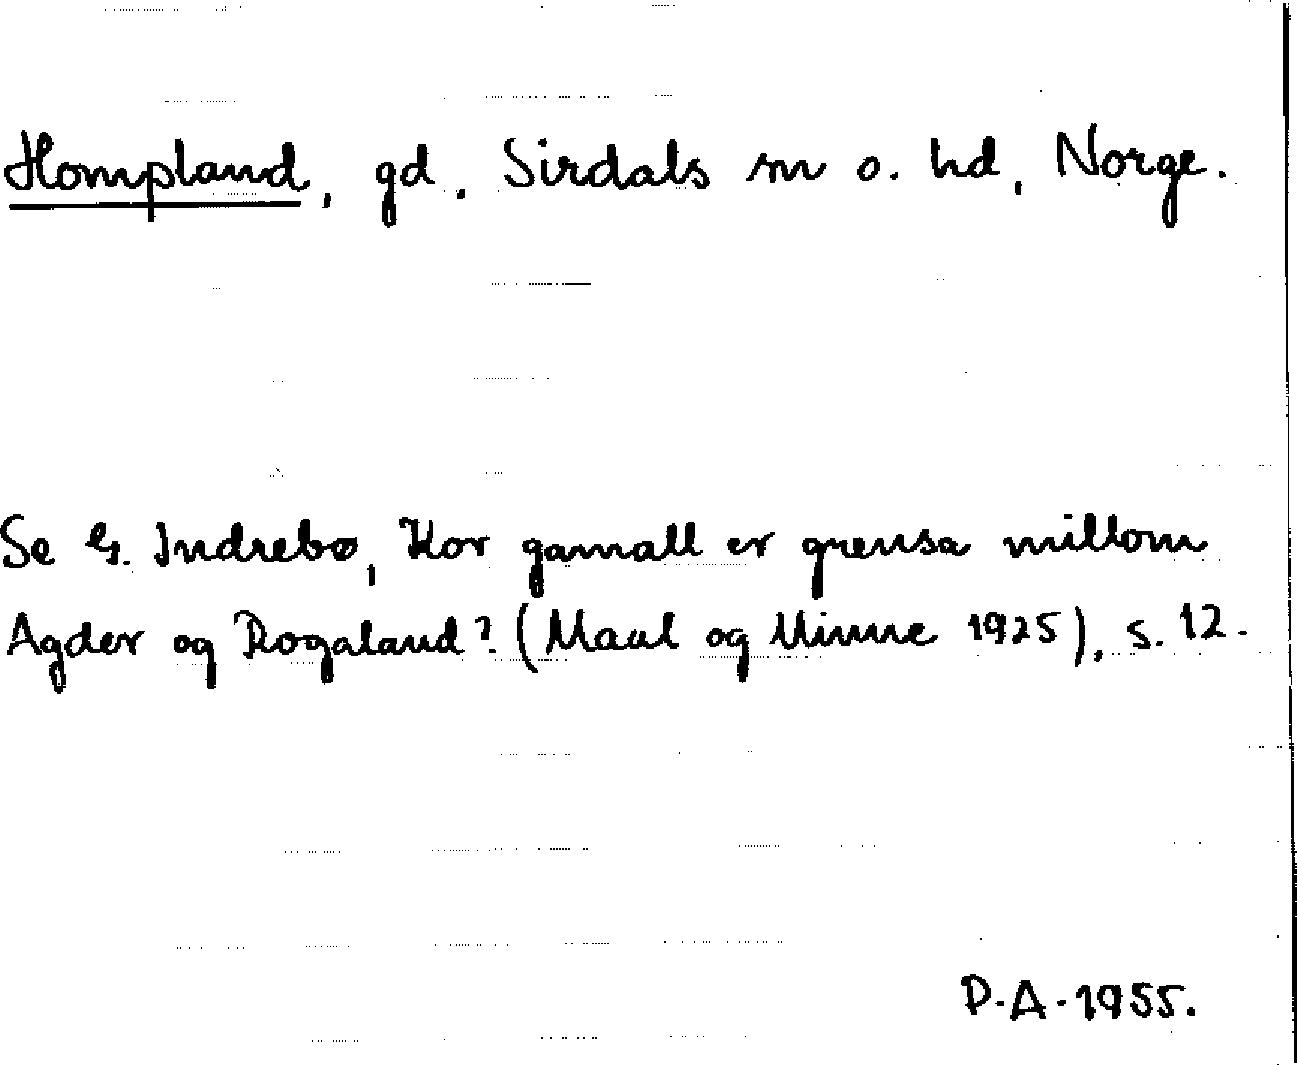 Hompland, gd, Sirdals sn o. hd, Norge.
Se G. Indrebø, Kor gamall er grensa millom
Agder og Rogaland? (Maal og Minne 1925), s. 12.
P.A. 1955.